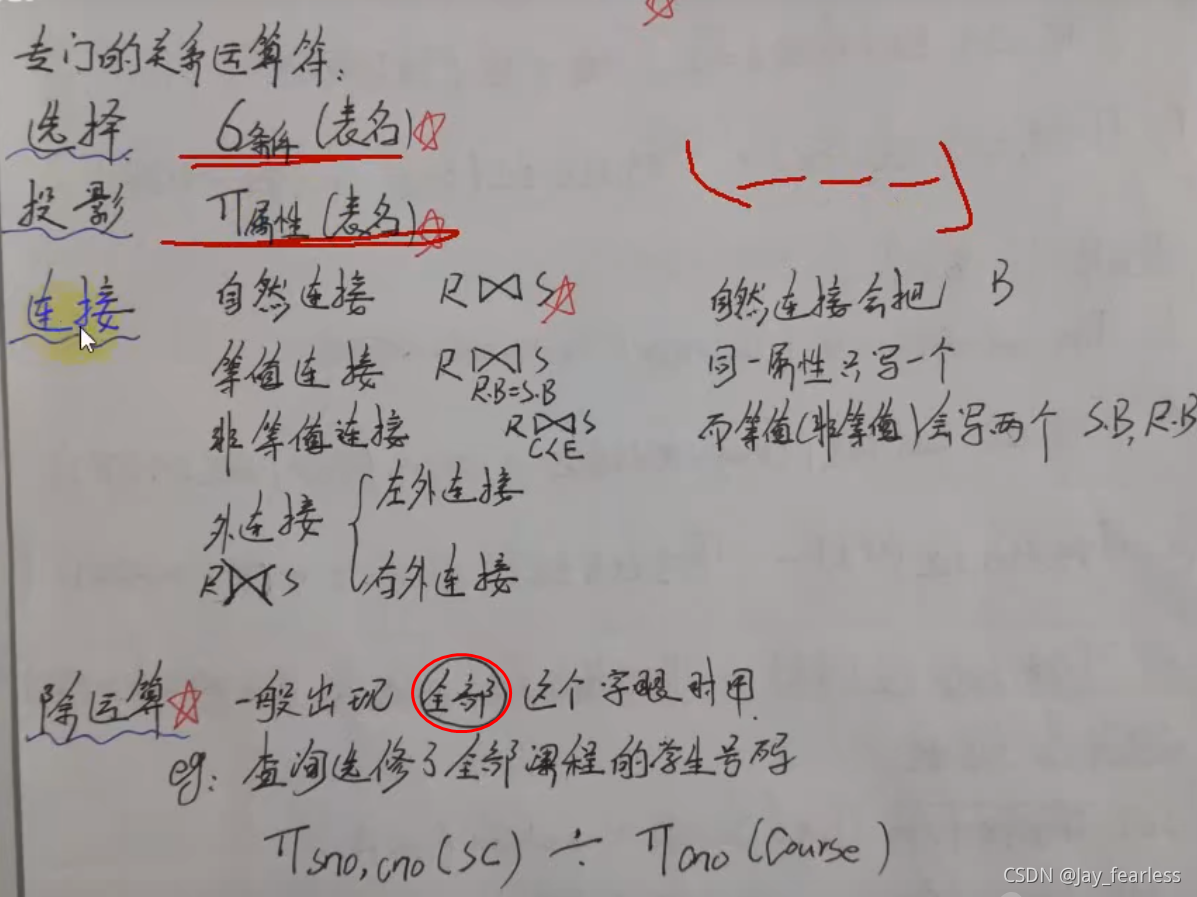 专门的关系运算符：
选择 6条件(表名)
投影 π属性(表名)
连接 自然连接 R⋈S 自然连接会把 B
等值连接 R⋈S R.B=S.B 同一属性只写一个
非等值连接 R⋈S C<E 而等值(非等值)会写两个 S.B, R.B
外连接 左外连接
R⋈S 右外连接
除运算 一般出现 全部 这个字眼时用.
eg: 查询选修了全部课程的学生号码
πsno,cno(SC) ÷ πcno(Course)
CSDN @Jay_fearless